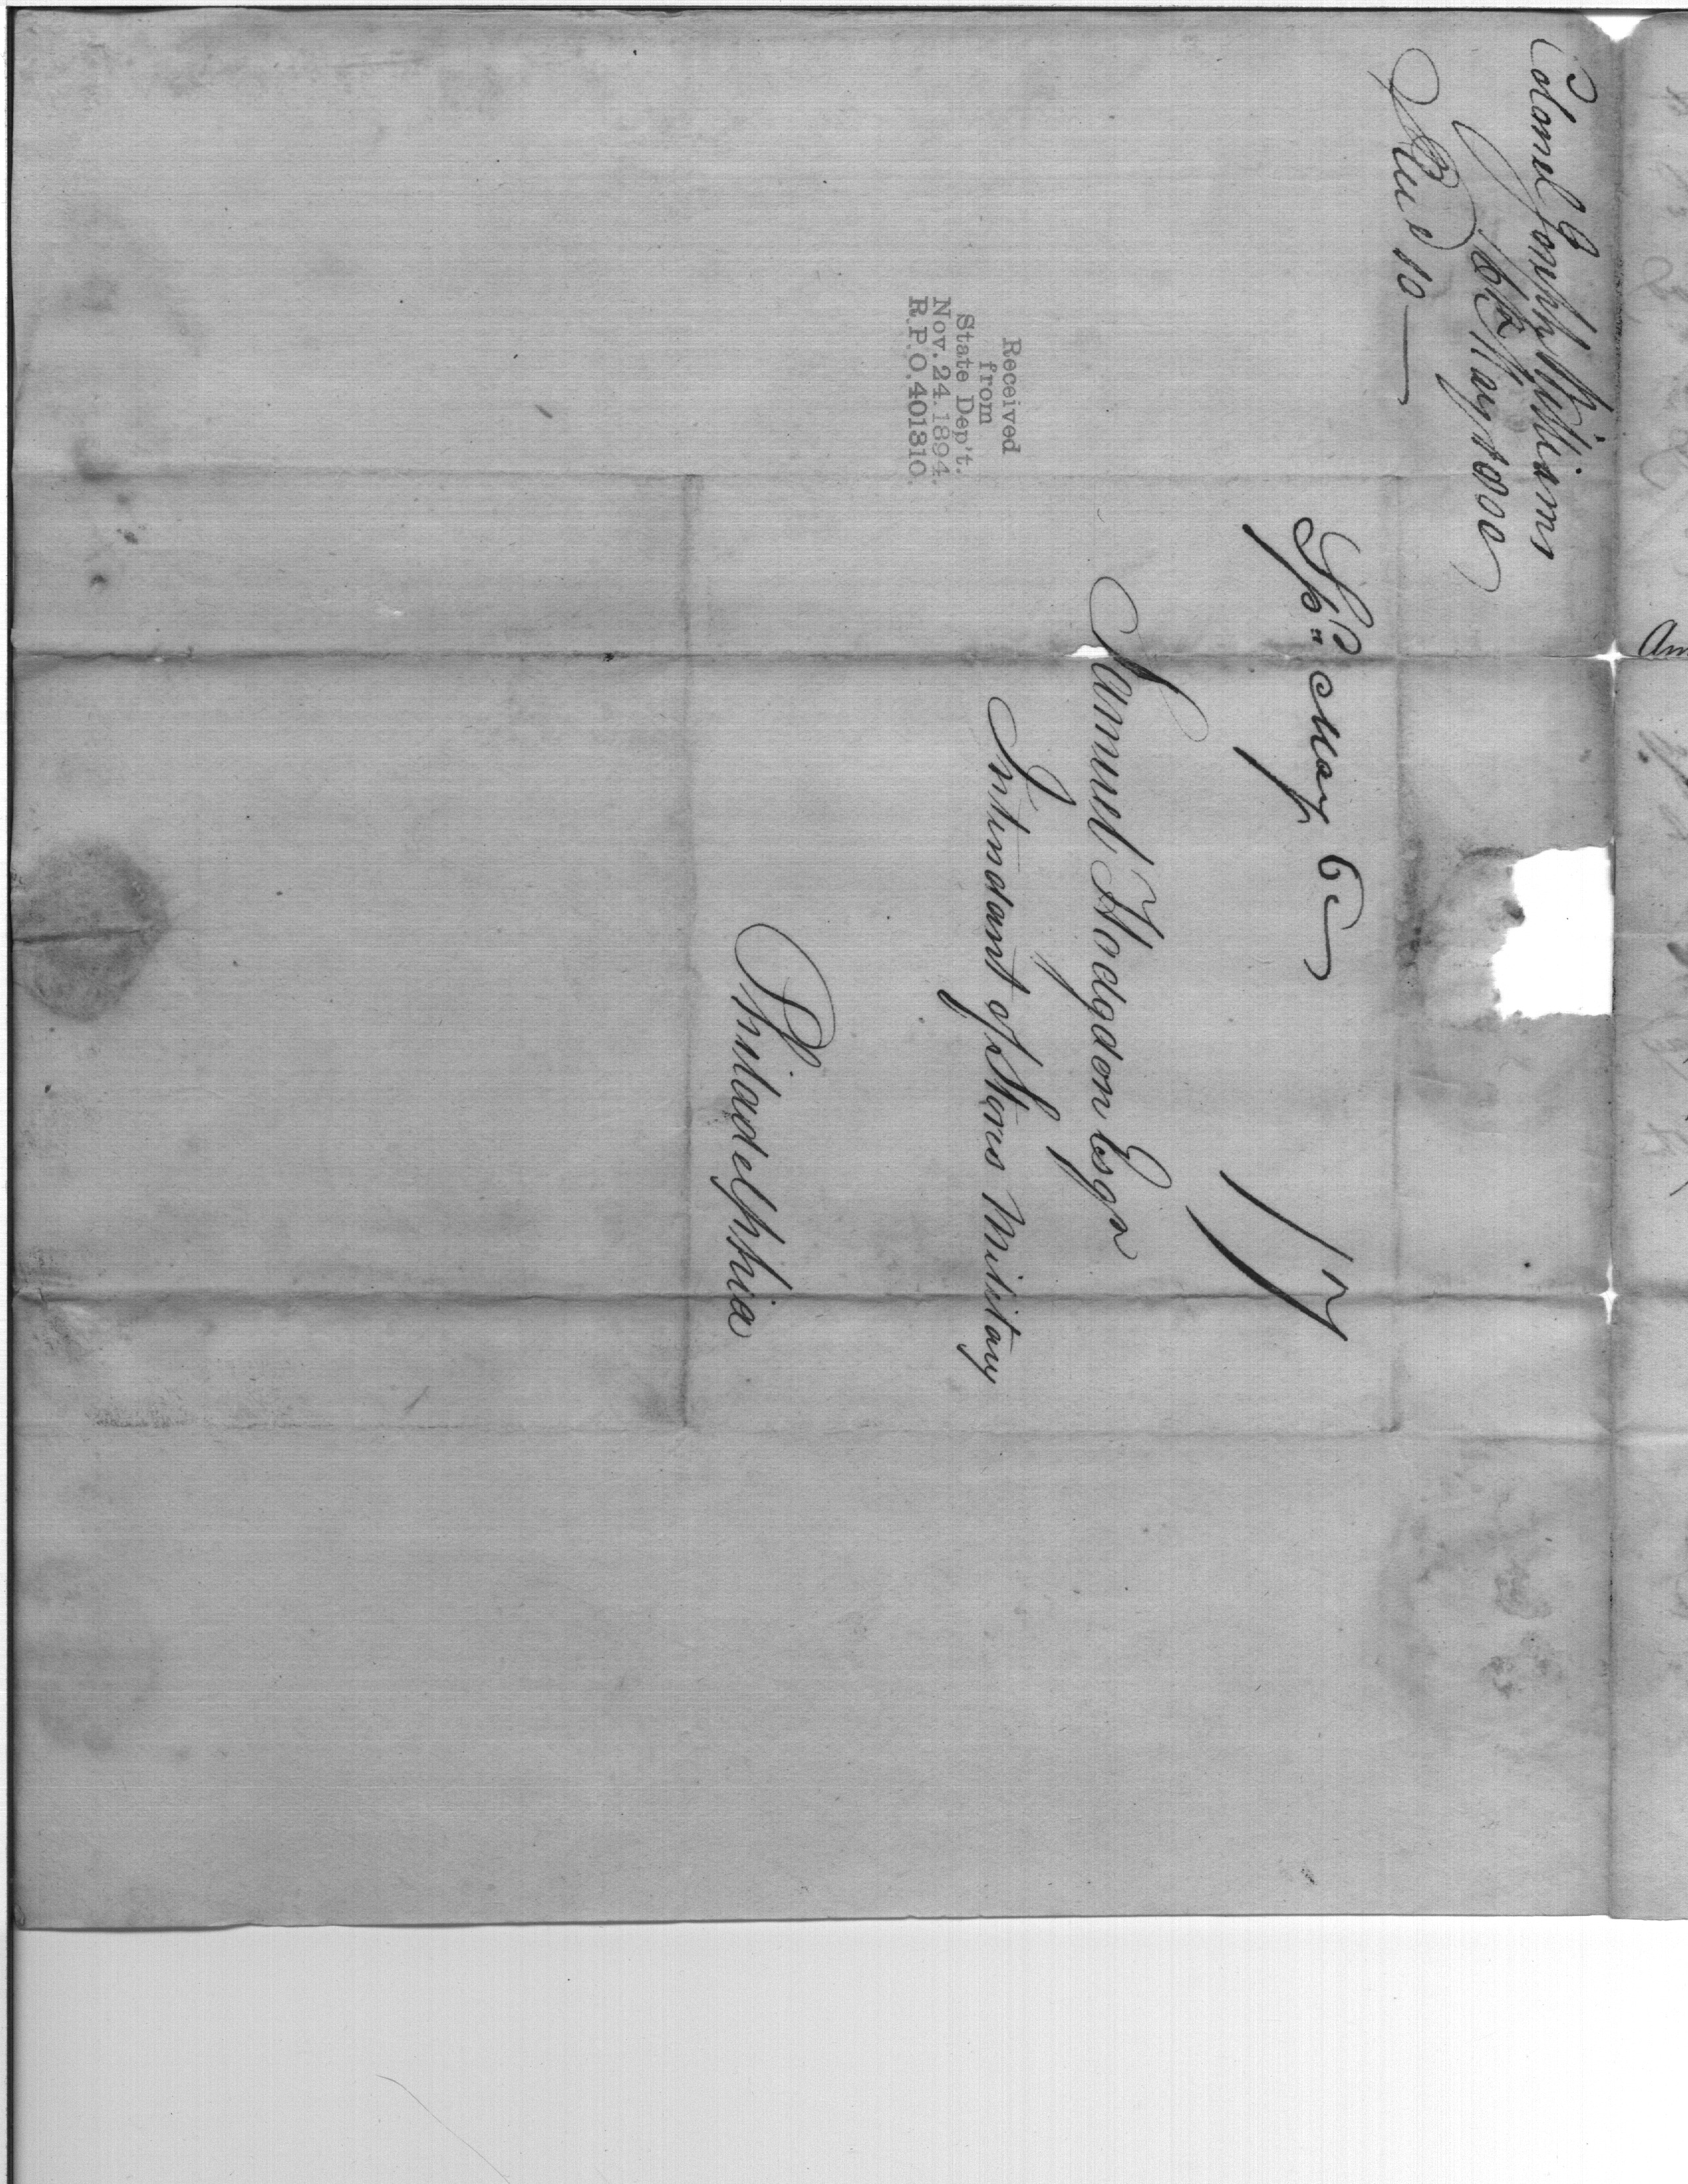 Colonel Joseph Williams
6th May 1800
Recd 10
Spd. May 6
17
Samuel Hodgdon Esqr
Intendant of Stores Military
Philadelphia
Received
from
State Dep't.
Nov. 24. 1894.
R.P.O. 401310.
Am